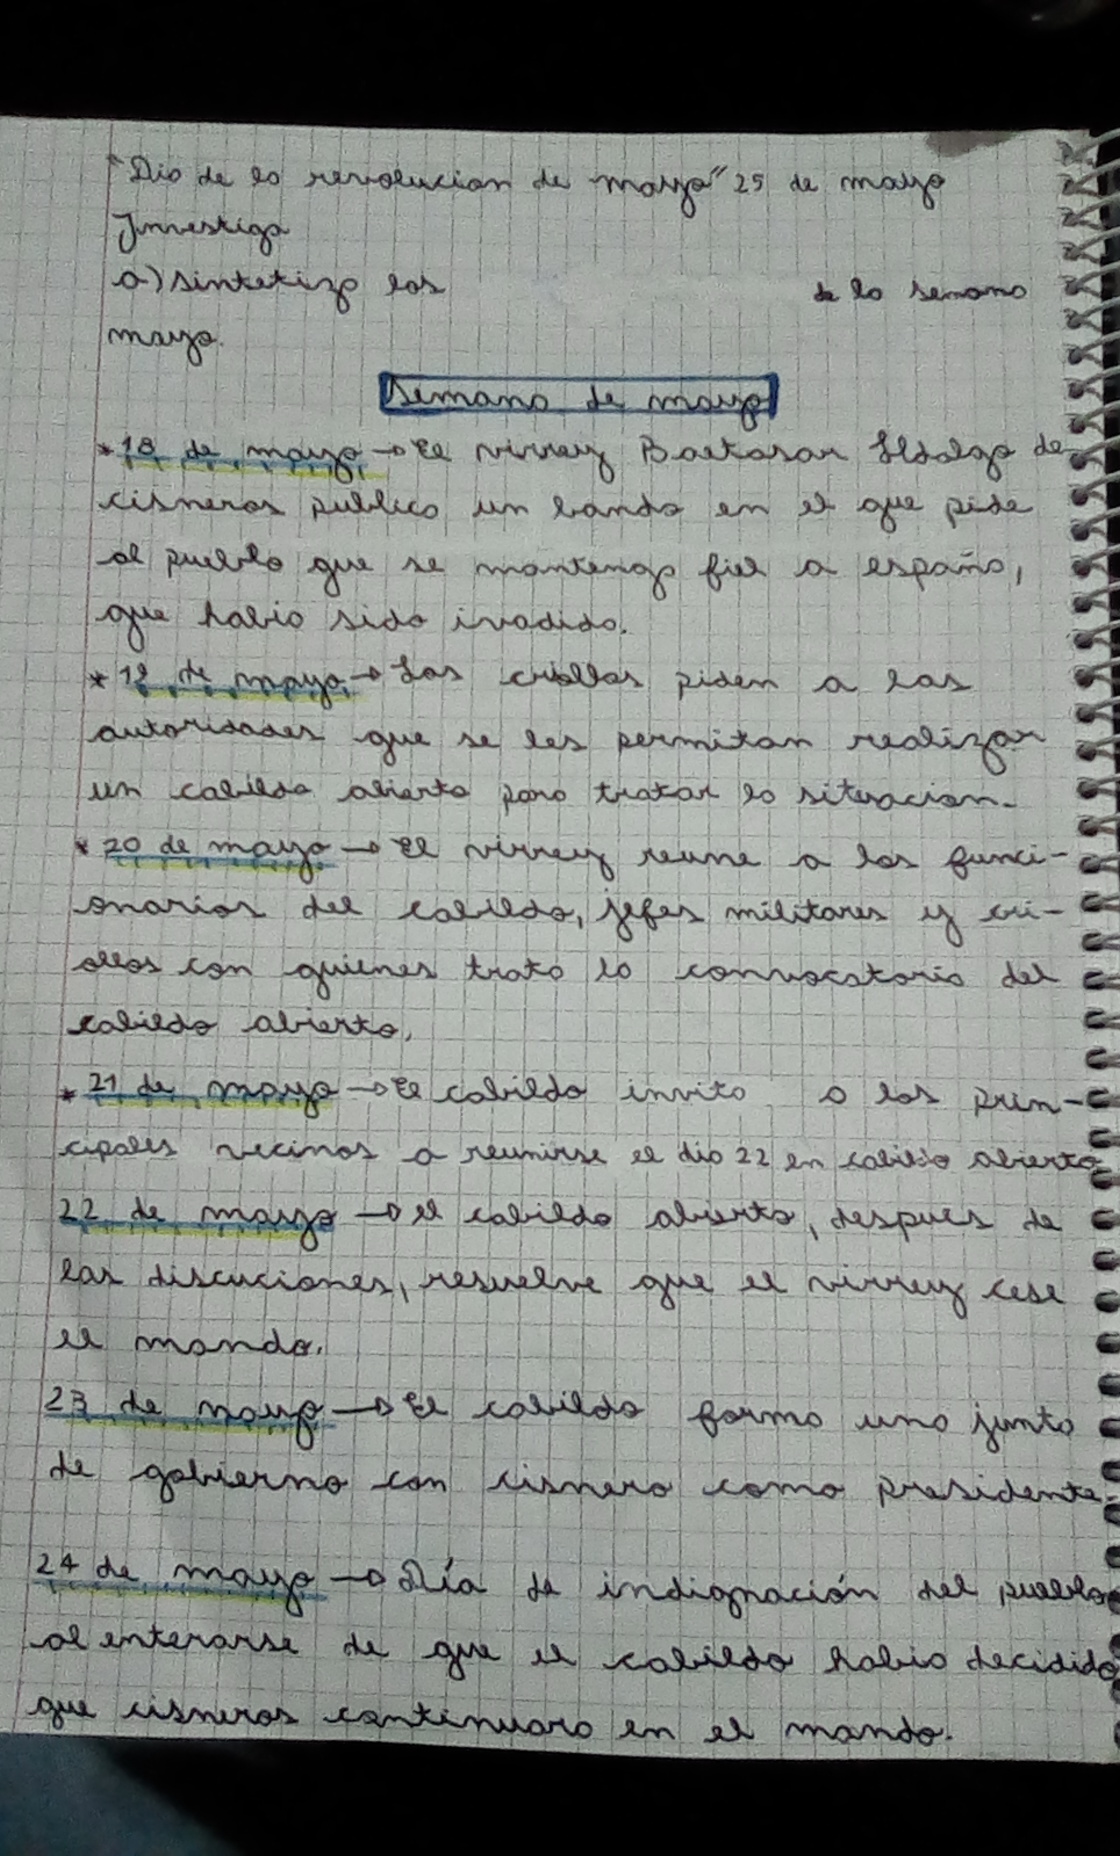 "Dia de la revolucion de mayo" 25 de mayo
Investiga
a) sintetiza los de la semana
mayo.
Semana de mayo
*18 de mayo → El virrey Baltasar Hidalgo de
cisneros publico un bando en el que pide
al pueblo que se mantenga fiel a españa,
que habia sido invadida.
*19 de mayo → Los criollos piden a las
autoridades que se les permitan realizar
un cabildo abierto para tratar la situacion.
*20 de mayo → El virrey reune a los funci-
onarios del cabildo, jefes militares y cri-
ollos con quienes trato la convocatoria del
cabildo abierto.
*21 de mayo → El cabildo invito a los prin-
cipales vecinos a reunirse el dia 22 en cabildo abierto
22 de mayo → el cabildo abierto, despues de
las discuciones, resuelve que el virrey cese
el mando.
23 de mayo → El cabildo forma una junta
de gobierno con cisnero como presidente.
24 de mayo → Día de indignación del pueblo
al enterarse de que el cabildo habia decidido
que cisneros continuara en el mando.